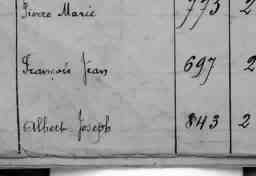 Pierre Marie 773 2
François Jean 697 2
Albert Joseph 843 2